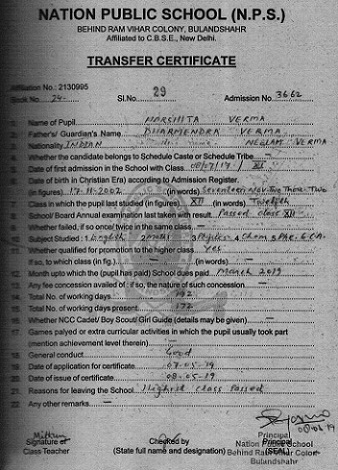 NATION PUBLIC SCHOOL (N.P.S.)
BEHIND RAM VIHAR COLONY, BULANDSHAHR
Affiliated to C.B.S.E., New Delhi.
TRANSFER CERTIFICATE
Affiliation No.: 2130995
Book No. 24 Sl.No. 29 Admission No. 3662
Name of Pupil VERMA
Father's/ Guardian's Name DHARMENDRA VERMA
Nationality INDIAN NEELAM VERMA
Whether the candidate belongs to Schedule Caste or Schedule Tribe
Date of first admission in the School with Class XI
Date of birth in Christian Era) according to Admission Register.
(in figures) 17-11-2002 (in words)
Class in which the pupil last studied (in figures) XII (in words) Twelfth
School/ Board Annual examination last taken with result. Passed class XII
Whether failed, if so once/ twice in the same class —
Subject Studied : 1 English 2 3 4 Chem 5
Whether qualified for promotion to the higher class Yes
If so, to which class (in fig.) — (in words) —
Month upto which the (pupil has paid) School dues paid March 2019
Any fee concession availed of : if so, the nature of such concession —
14. Total No. of working days 192
15. Total No. of working days present 172
16. Whether NCC Cadet/ Boy Scout/ Girl Guide (details may be given) —
17. Games palyed or extra curricular activities in which the pupil usually took part
(mention achievement level therein) —
18. General conduct Good
19. Date of application for certificate 07-05-19
20. Date of issue of certificate 08-05-19
21. Reasons for leaving the School Highest class passed
22. Any other remarks —
Signature of Checked by Principal
Class Teacher (State full name and designation) (SEAL)
Principal
Nation Public School
Behind Ram Vihar Colony
Bulandshahr